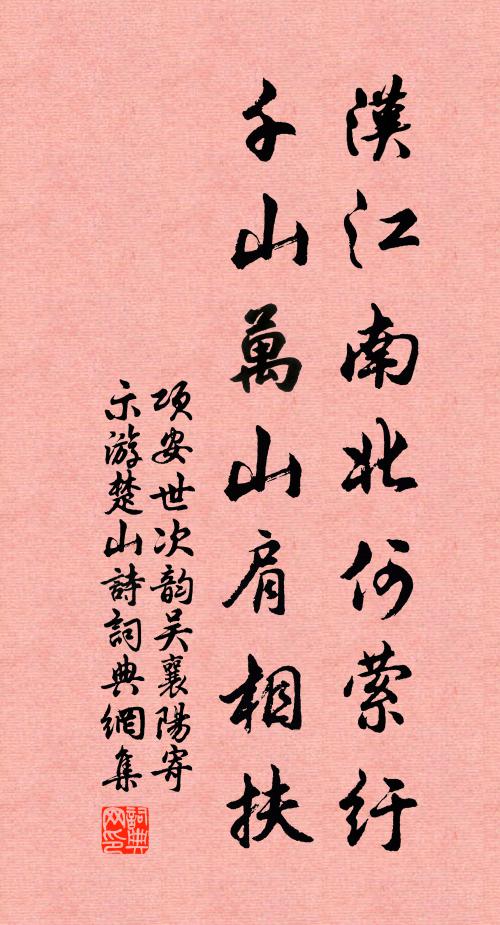 漢江南北何縈紆
千山萬山肩相扶
項安世次韵吴襄陽寄
示游楚山詩詞典網集
詞典网印